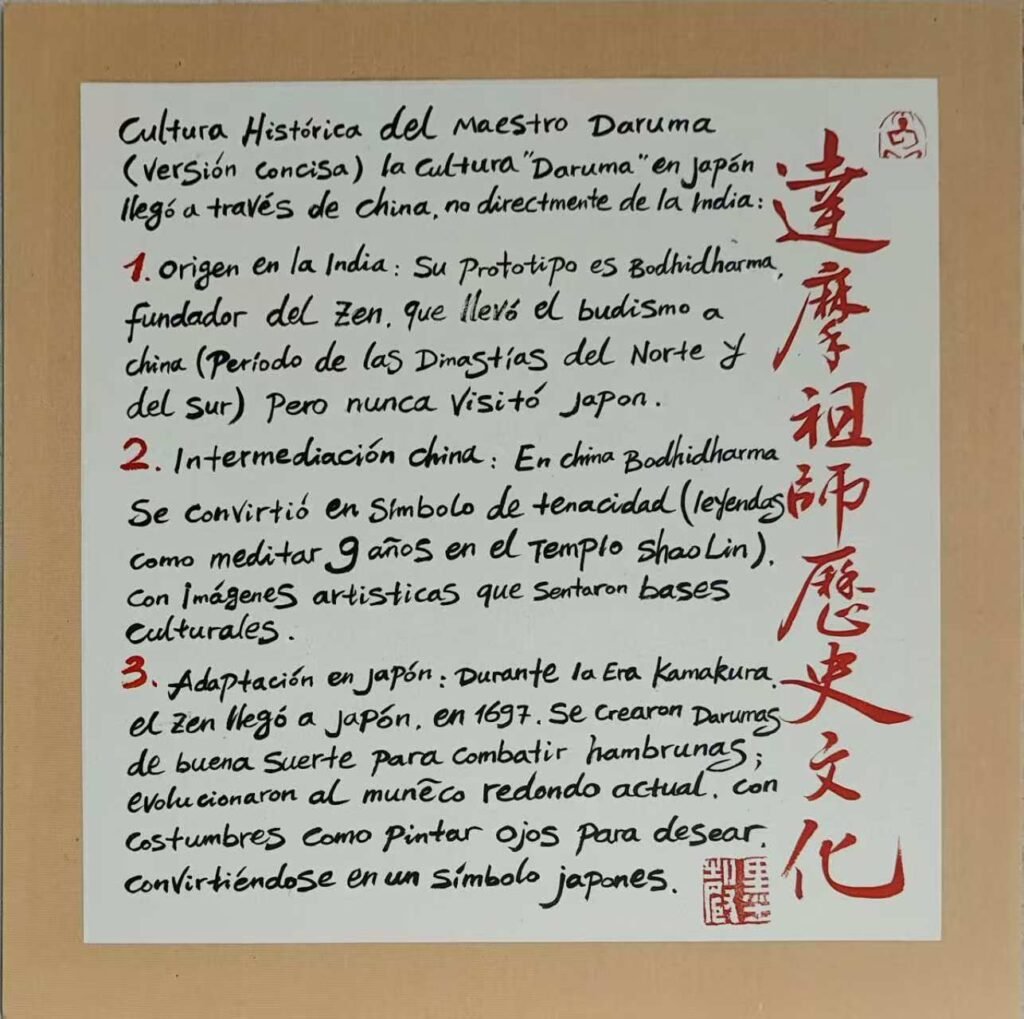 Cultura Histórica del Maestro Daruma
(Versión Concisa) la Cultura "Daruma" en Japón
llegó a través de china, no directmente de la India:
1. Origen en la India: Su Prototipo es Bodhidharma,
fundador del Zen, que llevó el budismo a
china (Período de las Dinastías del Norte y
del Sur) Pero nunca Visitó Japon.
2. Intermediación china: En china Bodhidharma
Se convirtió en Símbolo de tenacidad (leyendas
como meditar 9 años en el Templo ShaoLin),
con imágenes artisticas que Sentaron bases
Culturales.
3. Adaptación en Japón: Durante la Era Kamakura,
el Zen llegó a Japón, en 1697. Se Crearon Darumas
de buena Suerte para Combatir hambrunas;
evolucionaron al muñeco redondo actual, con
Costumbres Como Pintar Ojos Para desear,
Convirtiéndose en un Símbolo japones.
達摩祖師歷史文化